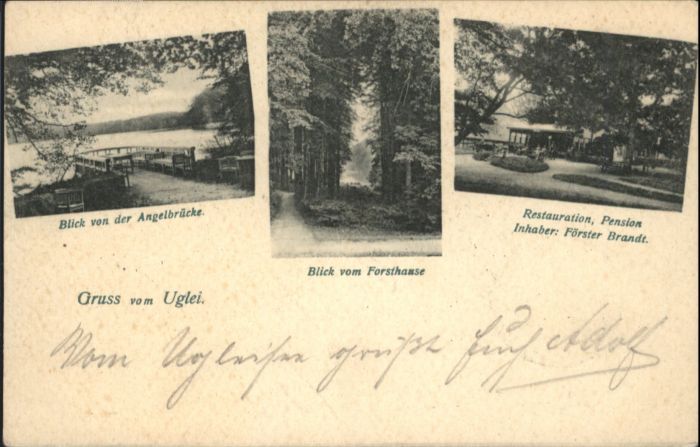 Blick von der Angelbrücke.
Blick vom Forsthause
Restauration, Pension
Inhaber: Förster Brandt.
Gruss vom Uglei.
Vom Ugleisee grüßt Euch Adolf